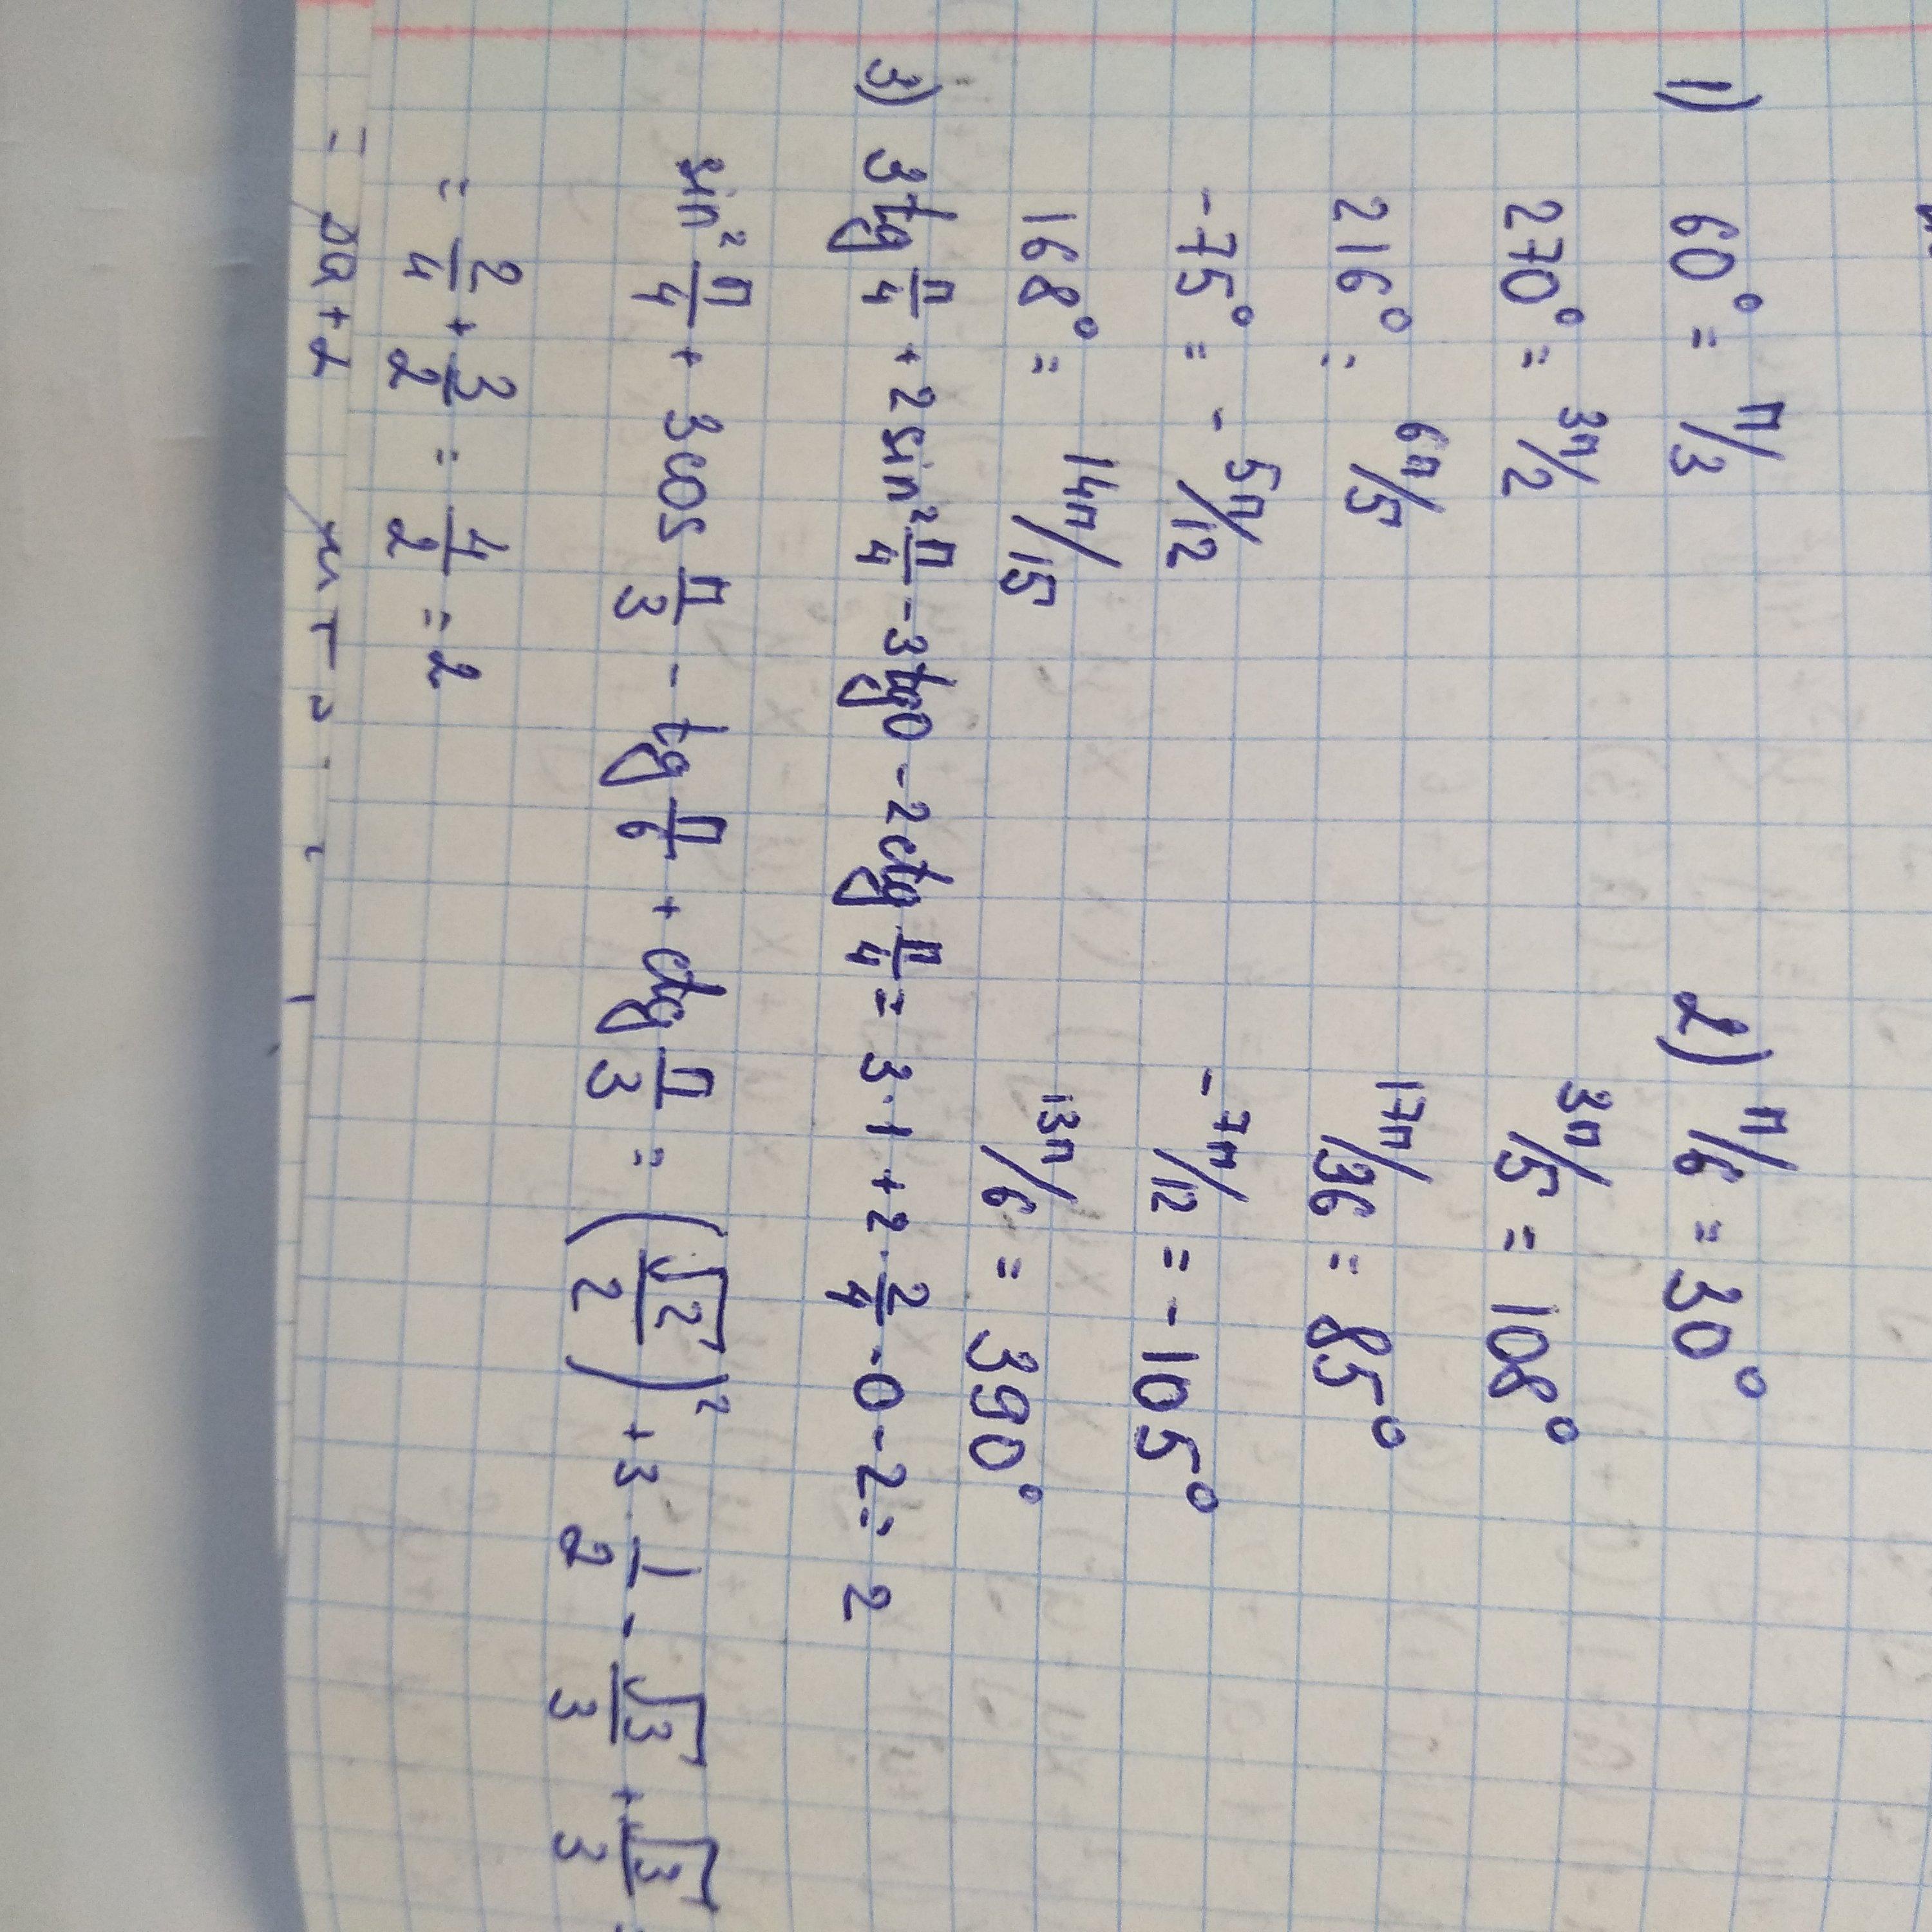 1) 60° = π/3
270° = 3π/2
216° = 6π/5
-75° = - 5π/12
168° = 14π/15
2) π/6 = 30°
3π/5 = 108°
17π/36 = 85°
-7π/12 = -105°
13π/6 = 390°
3) 3tg π/4 + 2 sin² π/4 - 3tg0 - 2ctg π/4 = 3·1 + 2· 2/4 - 0 - 2 = 2
sin² π/4 + 3cos π/3 - tg π/6 + ctg π/3 = (√2/2)² + 3· 1/2 - √3/3 + √3/3 =
= 2/4 + 3/2 = 4/2 = 2